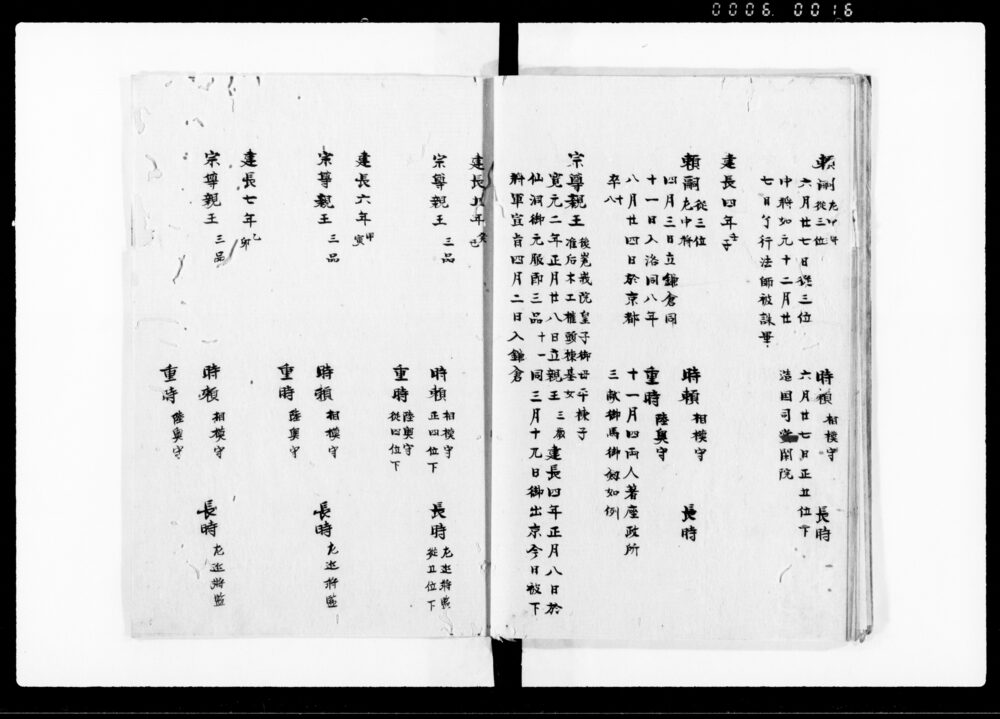 0006.0016
頼嗣 左中将 従三位
六月廿七日従三位
中将如元十二月廿
七日了行法師被誅畢
時頼 相模守
六月廿七日正五位下
造国司 閑院
長時
建長四年 壬子
頼嗣 従三位 左中将
四月三日立鎌倉同
十一日入洛同八年
八月廿四日於京都
卒 十八
時頼 相模守
重時 陸奥守
十一月四両人著座政所
三献御馬御剱如例
長時
宗尊親王 後嵯峨院皇子御母平棟子
准后木工権頭棟基女
寛元二年正月廿八日立親王 三歳 建長四年正月八日於
仙洞御元服即三品 十一 同三月十九日御出京今日被下
将軍宣旨四月二日入鎌倉
建長五年 癸丑
宗尊親王 三品
時頼 相模守 正四位下
重時 陸奥守 従四位下
長時 左近将監 従五位下
建長六年 甲寅
宗尊親王 三品
時頼 相模守
重時 陸奥守
長時 左近将監
建長七年 乙卯
宗尊親王 三品
時頼 相模守
重時 陸奥守
長時 左近将監